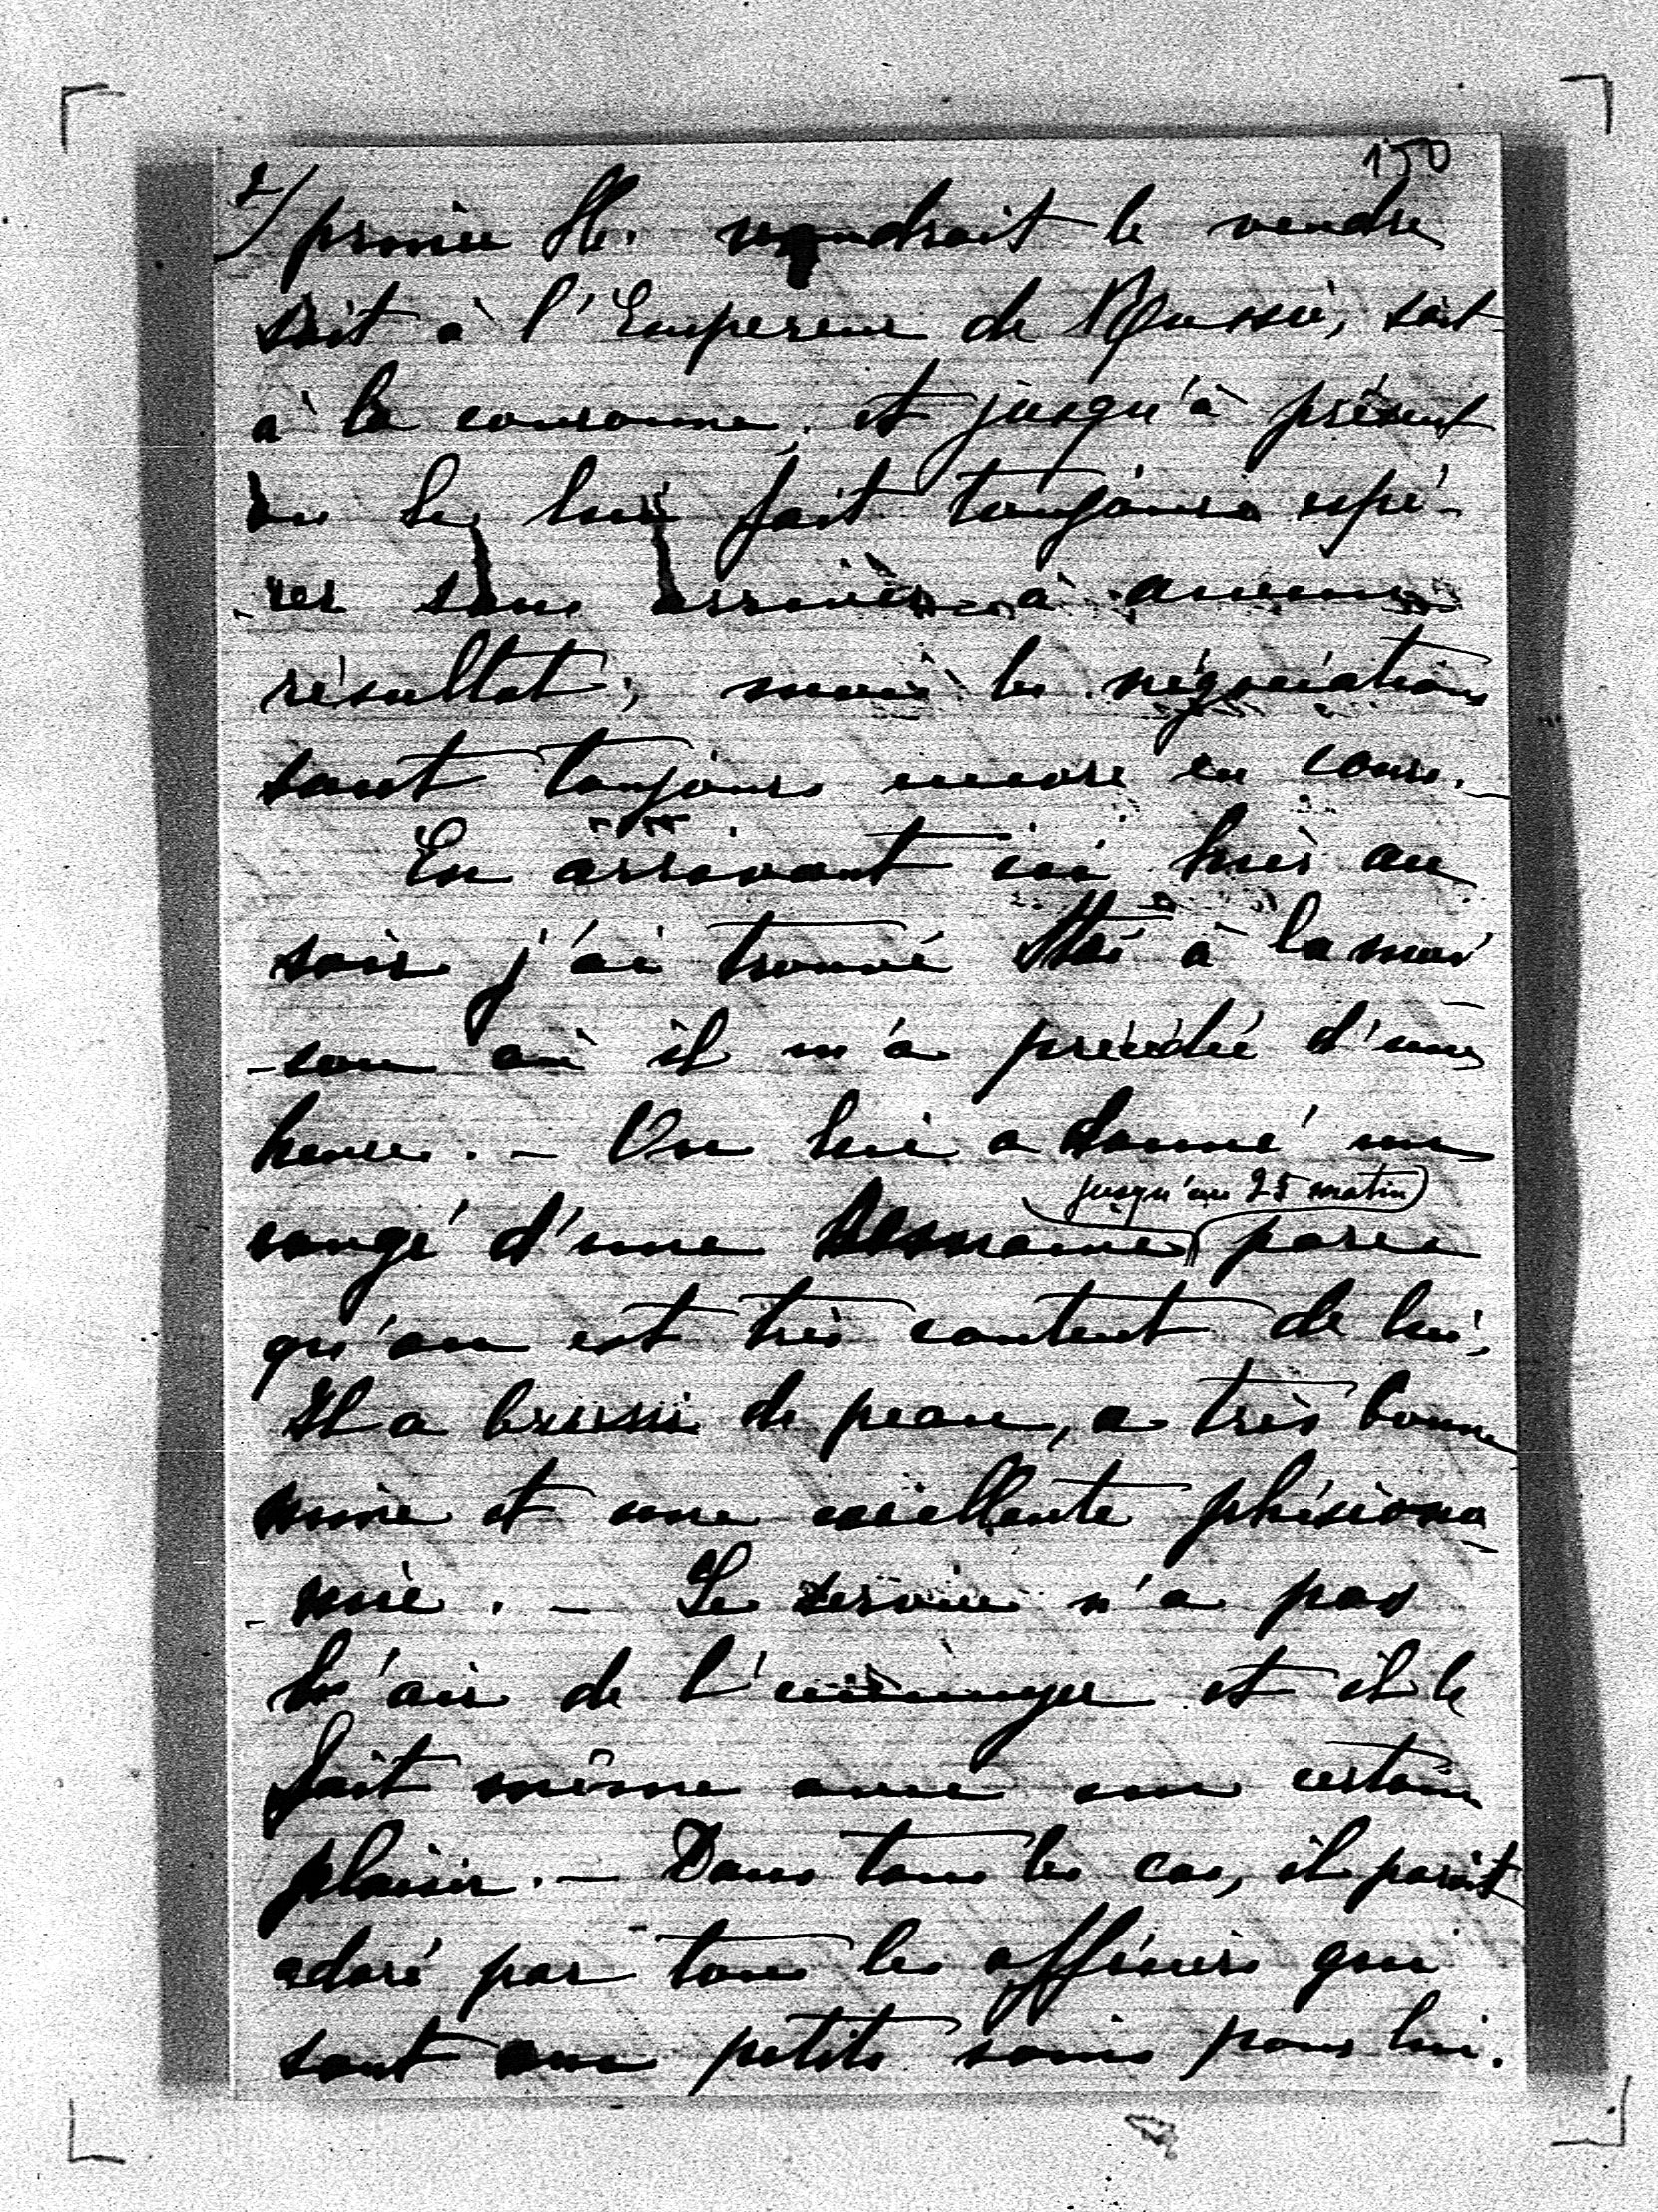 150
2/ prince H. voudrait le vendre
soit à l'Empereur de Russie, soit
à la couronne, et jusqu'à présent
on le lui fait toujours espé-
-rer sans arriver à aucun
résultat; mais les négociations
sont toujours encore en cours. _
En arrivant ici hier au
soir j'ai trouvé à la mai
-son où il m'a précédé d'une
heure. - On lui a donné un
jusqu'au 25 matin
congé d'une semaine parce
qu'on est très content de lui,
Il a bruni de peau, a très bonne
mine et une excellente phisiono
-mie. - Le service n'a pas
l'air de l'ennuyer et il le
fait même avec un certain
plaisir. - Dans tous les cas, il parait
adoré par tous les officiers qui
sont aux petits soins pour lui.